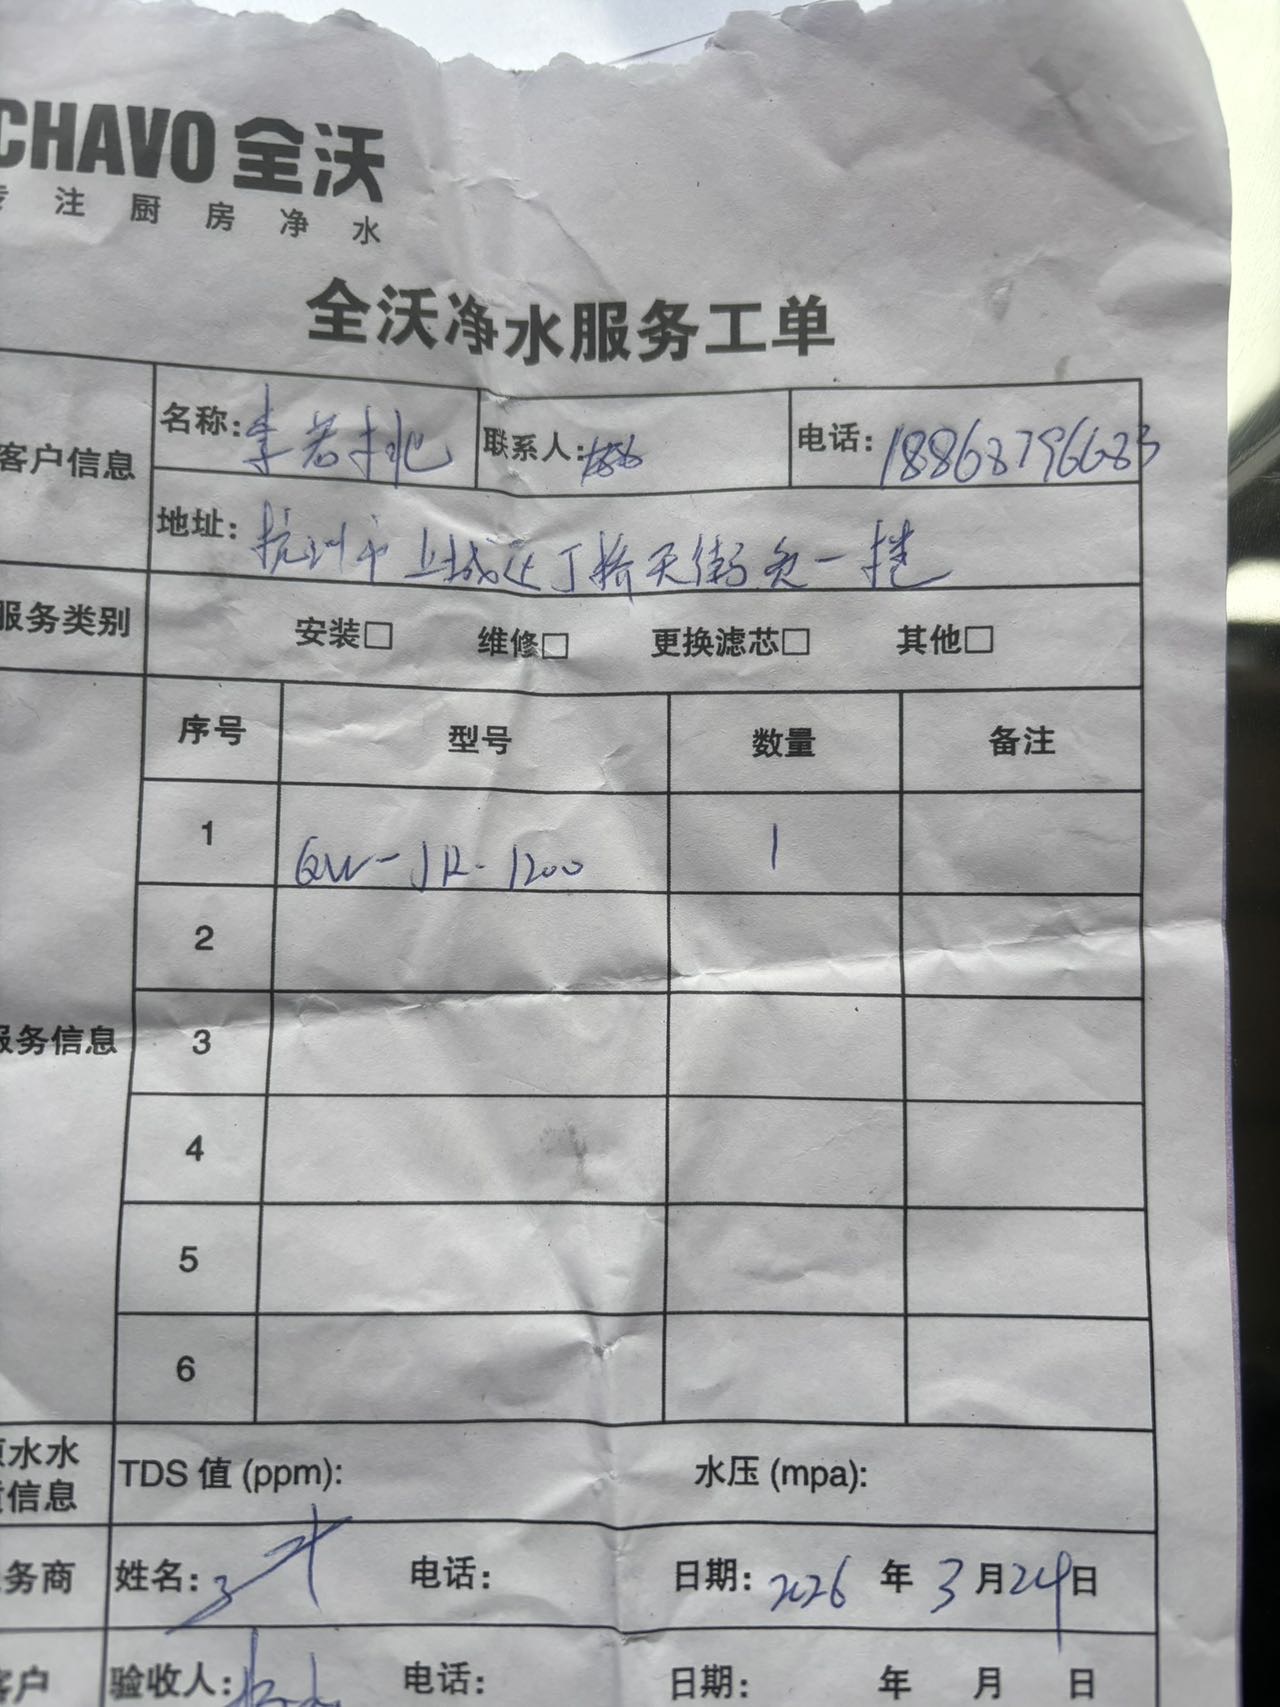 CHAVO 全沃
专注厨房净水
全沃净水服务工单
客户信息 名称: 李若桃 联系人: 电话: 18868796683
地址: 杭州市上城区丁桥天街负一楼
服务类别 安装□ 维修□ 更换滤芯□ 其他□
序号 型号 数量 备注
1 QW-JR-1200 1
2
服务信息 3
4
5
6
原水水
质信息 TDS 值 (ppm): 水压 (mpa):
务商 姓名: 电话: 日期: 2026 年 3 月 24 日
客户 验收人: 电话: 日期: 年 月 日